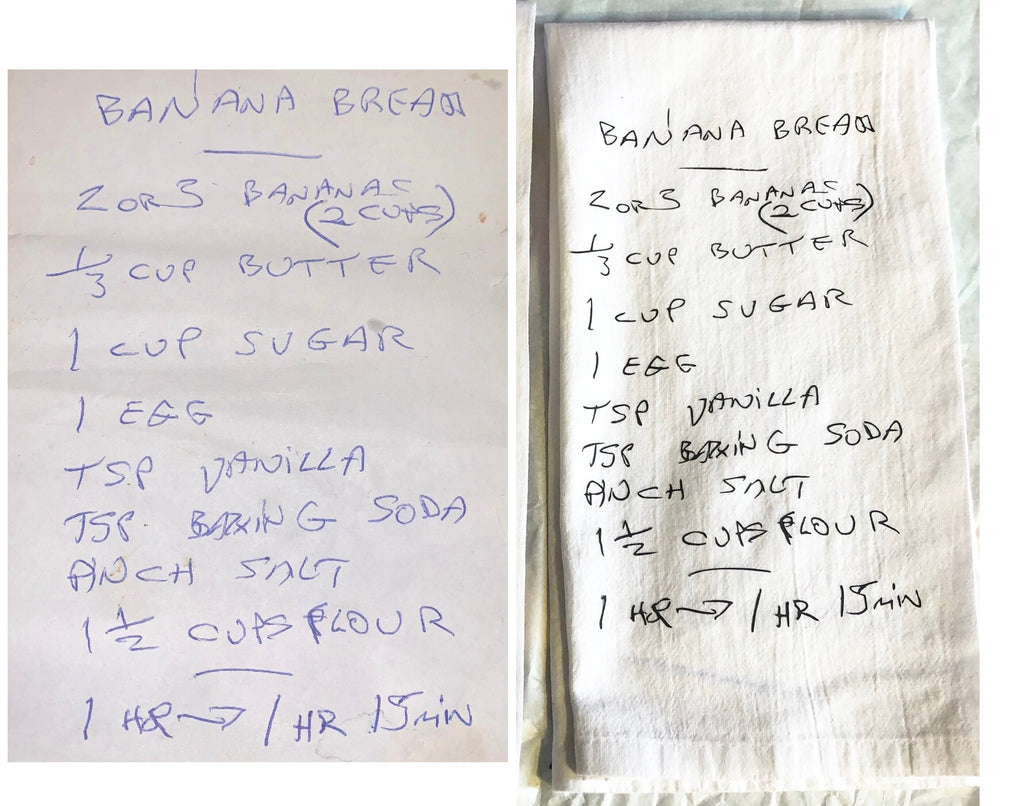 BANANA BREAD
2 OR 3 BANANAS
(2 CUPS)
1/3 CUP BUTTER
1 CUP SUGAR
1 EGG
TSP VANILLA
TSP. BAKING SODA
PINCH SALT
1 1/2 CUPS FLOUR
1 HR → 1 HR 15 MIN
BANANA BREAD
2 OR 3 BANANAS
(2 CUPS)
1/3 CUP BUTTER
1 CUP SUGAR
1 EGG
TSP VANILLA
TSP BAKING SODA
PINCH SALT
1 1/2 CUPS FLOUR
1 HR → 1 HR 15 MIN